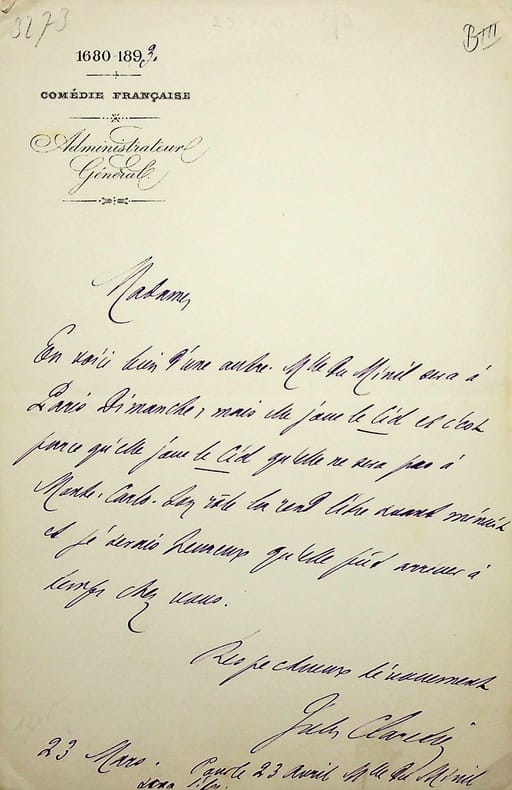 3273
BIII
1680-1893.
COMÉDIE FRANÇAISE
Administrateur
Général
Madame,
En voici bien d'une autre. Mlle du Minil sera à
Paris Dimanche, mais elle joue le Cid et c'est
parce qu'elle joue le Cid qu'elle ne sera pas à
Monte-Carlo. Son rôle la rend libre avant minuit
et je serais heureux qu'elle pût arriver à
temps chez vous.
Respectueux dévouement
Jules Claretie
23 Mars.
Pour le 23 avril Mlle du Minil